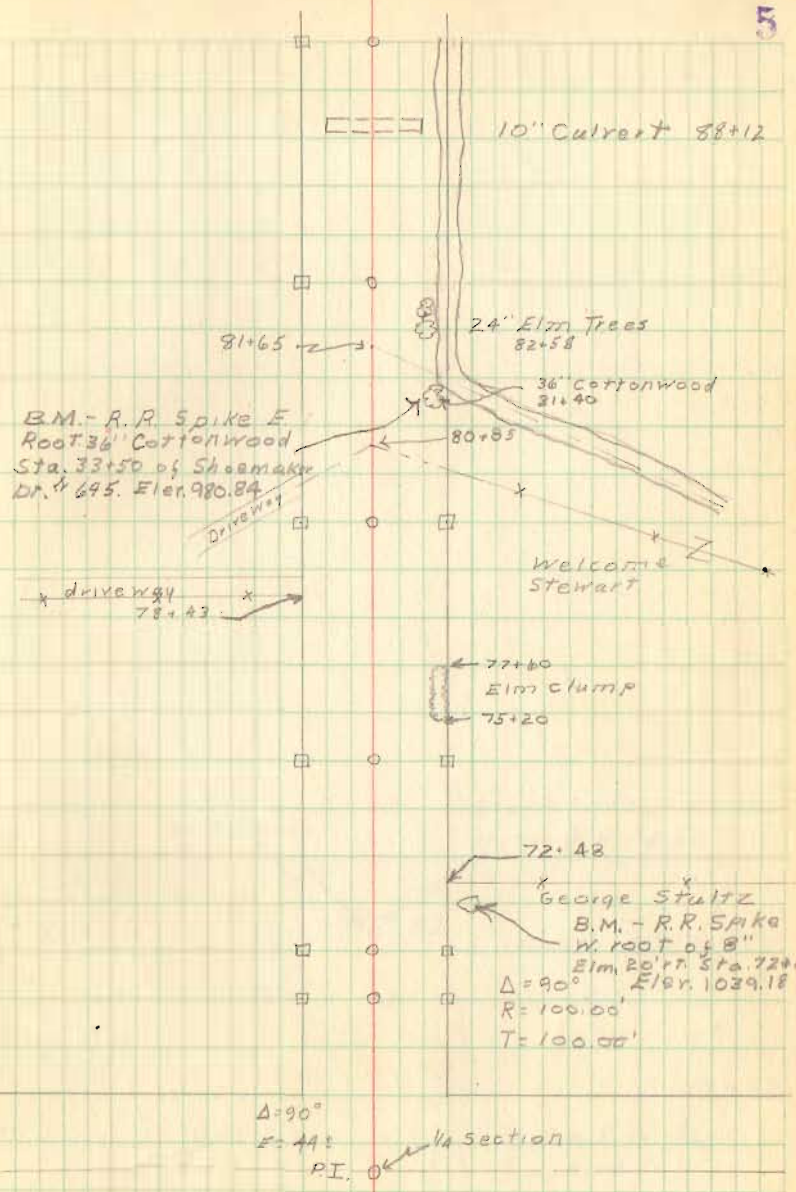 5
10" Culvert 88+12
24" Elm Trees
82+58
81+65
36" Cottonwood
81+40
B.M.- R.R. Spike E
Root 36" Cottonwood
Sta. 33+50 of Shoemaker
Dr. 645. Elev. 980.84
80+85
Driveway
Welcome
Stewart
driveway
78+43
77+60
Elm clump
75+20
72+48
George Stultz
B.M. - R.R. Spike
W. root of 8"
Elm, 20' rt. Sta. 72+
Elev. 1039.18
Δ = 90°
R = 100.00'
T = 100.00'
Δ = 90°
1/4 Section
P.I.